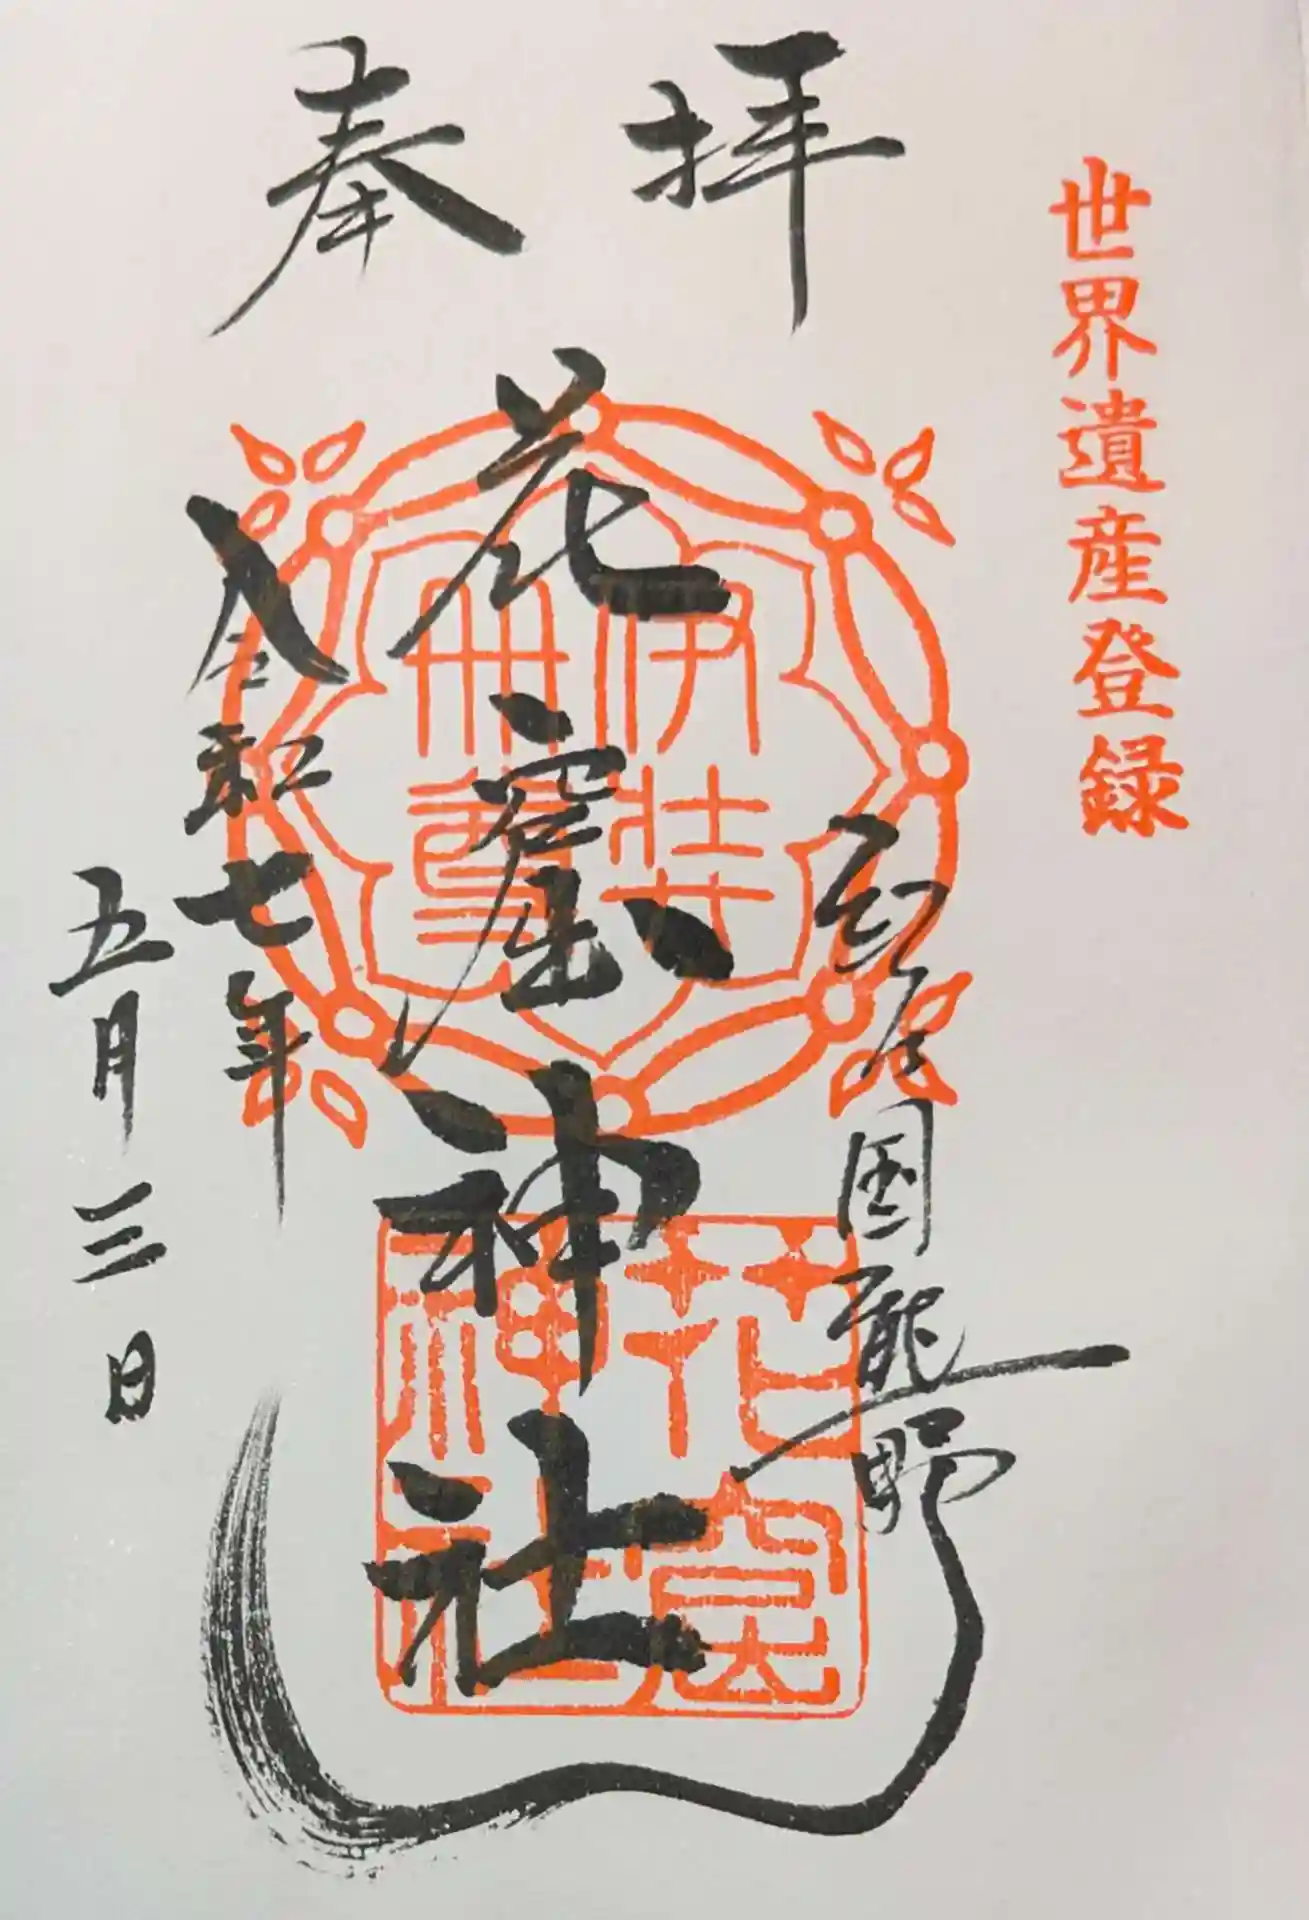 奉拝
世界遺産登録
紀伊国熊野
花窟神社
令和七年
五月三日
伊弉
冊尊
花窟
神社